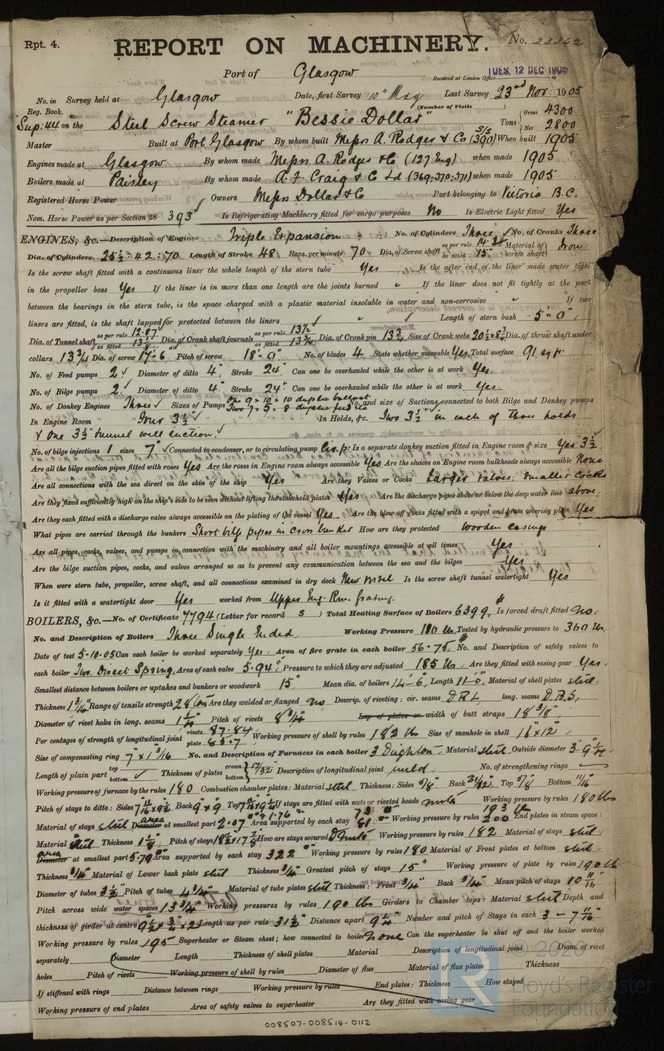 Rpt. 4.
REPORT ON MACHINERY.
No. 23342
Port of Glasgow
Received at London Office TUES. 12 DEC 1905
No. in Survey held at Glasgow Date, first Survey 10th May Last Survey 23rd Nov 1905
Reg. Book. (Number of Visits
Sup. 44 on the Steel Screw Steamer "Bessie Dollar" Tons Gross 4300 Net 2800
Master Built at Port Glasgow By whom built Messrs A. Rodger & Co When built 1905
Engines made at Glasgow By whom made Messrs A. Rodger & Co (127 Eng) when made 1905
Boilers made at Paisley By whom made A. F. Craig & Co Ld (369-370-371) when made 1905
Registered Horse Power Owners Messrs Dollar & Co Port belonging to Victoria B.C.
Nom. Horse Power as per Section 28 393 Is Refrigerating Machinery fitted for cargo purposes No Is Electric Light fitted Yes
ENGINES, &c.—Description of Engines Triple Expansion No. of Cylinders Three No. of Cranks Three
Dia. of Cylinders 25½ : 42 : 70 Length of Stroke 48 Revs. per minute 70 Dia. of Screw shaft as per rule as fitted 15" Material of screw shaft Iron
Is the screw shaft fitted with a continuous liner the whole length of the stern tube Yes Is the after end of the liner made water tight
in the propeller boss Yes If the liner is in more than one length are the joints burned " If the liner does not fit tightly at the part
between the bearings in the stern tube, is the space charged with a plastic material insoluble in water and non-corrosive " If two
liners are fitted, is the shaft lapped or protected between the liners " Length of stern bush 5'-0"
Dia. of Tunnel shaft as per rule 12.87 as fitted Dia. of Crank shaft journals as per rule as fitted 13¾ Dia. of Crank pin 13¾ Size of Crank webs Dia. of thrust shaft under
collars 13¾ Dia. of screw 17'-6" Pitch of screw 18'-0" No. of blades 4 State whether moveable Yes Total surface 91 sq ft
No. of Feed pumps 2 Diameter of ditto 4 Stroke 24" Can one be overhauled while the other is at work Yes
No. of Bilge pumps 2 Diameter of ditto 4" Stroke 24" Can one be overhauled while the other is at work Yes
No. of Donkey Engines Three Sizes of Pumps One 9-10-10 duplex ballast Two 7-5-8 duplex feed &c No. and size of Suctions connected to both Bilge and Donkey pumps
In Engine Room Four 3½" In Holds, &c. Two 3½" in each of three holds
& One 3½" tunnel well suction.
No. of bilge injections 1 sizes 7" Connected to condenser, or to circulating pump Cir.p. Is a separate donkey suction fitted in Engine room & size Yes 3½
Are all the bilge suction pipes fitted with roses Yes Are the roses in Engine room always accessible Yes Are the sluices on Engine room bulkheads always accessible None
Are all connections with the sea direct on the skin of the ship Yes Are they Valves or Cocks Larger valves: smaller cocks
Are they fixed sufficiently high on the ship's side to be seen without lifting the stokehold plates Yes Are the discharge pipes above or below the deep water line above
Are they each fitted with a discharge valve always accessible on the plating of the vessel Yes Are the blow off cocks fitted with a spigot and brass covering plate Yes
What pipes are carried through the bunkers Short bilge pipes in cross bunker How are they protected wooden casings
Are all pipes, cocks, valves, and pumps in connection with the machinery and all boiler mountings accessible at all times Yes
Are the bilge suction pipes, cocks, and valves arranged so as to prevent any communication between the sea and the bilges Yes
When were stern tube, propeller, screw shaft, and all connections examined in dry dock New vessel Is the screw shaft tunnel watertight Yes
Is it fitted with a watertight door Yes worked from Upper Eng. Rm. grating.
BOILERS, &c.—No. of Certificate 7794 (Letter for record S) Total Heating Surface of Boilers 6399 Is forced draft fitted no.
No. and Description of Boilers Three Single Ended Working Pressure 180 lbs Tested by hydraulic pressure to 360 lbs
Date of test 5-10-05 Can each boiler be worked separately Yes. Area of fire grate in each boiler 56.75 No. and Description of safety valves to
each boiler Two. Direct Spring. Area of each valve 5.94 Pressure to which they are adjusted 185 lbs Are they fitted with easing gear Yes.
Smallest distance between boilers or uptakes and bunkers or woodwork 15" Mean dia. of boilers 14-6 Length 11-0 Material of shell plates steel
Thickness Range of tensile strength Are they welded or flanged no Descrip. of riveting: cir. seams D.R.L. long. seams D.B.S.
Diameter of rivet holes in long. seams 1¼" Pitch of rivets 8¾ Lap of plates or width of butt straps 18⅜"
Per centages of strength of longitudinal joint rivets 87.84 plate 85.7 Working pressure of shell by rules 182 lb Size of manhole in shell 16" x 12"
Size of compensating ring No. and Description of Furnaces in each boiler 3 Deighton Material steel Outside diameter
Length of plain part top bottom Thickness of plates crown bottom 17/32 Description of longitudinal joint weld No. of strengthening rings
Working pressure of furnace by the rules 180 Combustion chamber plates: Material steel Thickness: Sides Back Top Bottom
Pitch of stays to ditto: Sides Back 9" x 9" Top If stays are fitted with nuts or riveted heads nuts Working pressure by rules 180 lbs
Material of stays steel area at smallest part 2.07 Area supported by each stay Working pressure by rules 200 End plates in steam space:
Material steel Thickness Pitch of stays How are stays secured D nuts Working pressure by rules 182 Material of stays steel
area at smallest part 5.79 Area supported by each stay 322 Working pressure by rules 180 Material of Front plates at bottom steel
Thickness Material of Lower back plate steel Thickness Greatest pitch of stays 15" Working pressure of plate by rules 190 lb
Diameter of tubes 3½ Pitch of tubes 4¾" Material of tube plates steel Thickness: Front Back ¾" Mean pitch of stays
Pitch across wide water spaces 13¾" Working pressures by rules 190 lbs Girders to Chamber tops: Material steel Depth and
thickness of girder at centre Length as per rule Distance apart Number and pitch of Stays in each
Working pressure by rules 195 Superheater or Steam chest; how connected to boiler None Can the superheater be shut off and the boiler worked
separately Diameter Length Thickness of shell plates Material Description of longitudinal joint Diam. of rivet
holes Pitch of rivets Working pressure of shell by rules Diameter of flue Material of flue plates Thickness
If stiffened with rings Distance between rings Working pressure by rules End plates: Thickness How stayed
Working pressure of end plates Area of safety valves to superheater Are they fitted with easing gear
008507-008514-0112
© 2020
Lloyd's Register
Foundation